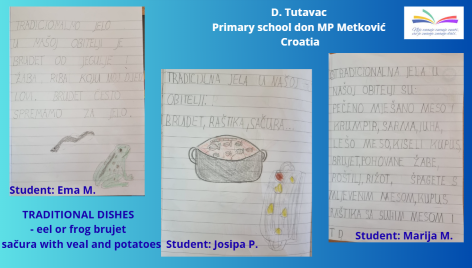 D. Tutavac
Primary school don MP Metković
Croatia
TRADICIONALNO JELO
U NAŠOJ OBITELJI JE
BRUDET OD JEGULJE I
ŽABA. RIBA KOJU MOJ
LOVI. BRUDET ČESTO
SPREMAMO ZA JELO.
Student: Ema M.
TRADITIONAL DISHES
- eel or frog brujet
sačura with veal and potatoes
TRADICIJNA JELA U NAŠOJ
OBITELJI.
BRUDET, RAŠTIKA, SAČURA...
Student: Josipa P.
TRADICIONALNA JELA U
NAŠOJ OBITELJI SU:
PEČENO MIJEŠANO MESO I
KRUMPIR, SARMA, JUHA,
LEŠO MESO, KISELI KUPUS,
BRUJET, POHOVANE ŽABE,
RIŽOT, ŠPAGETE S
MLJEVENIM MESOM, KUPUS
RAŠTIKA SA SUHIM MESOM I
TD
Student: Marija M.